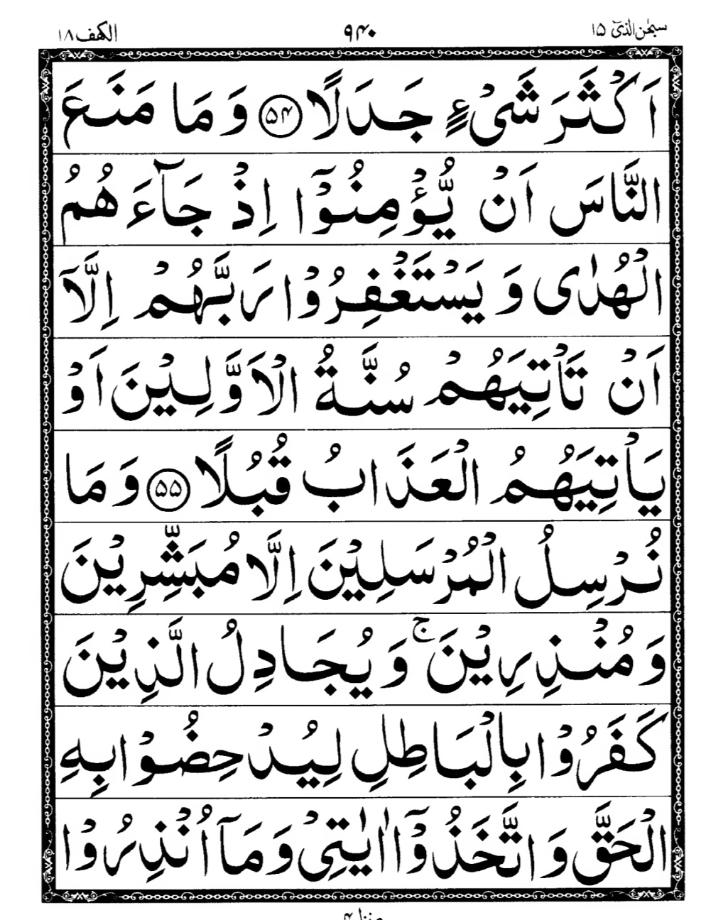 سبحٰن الذیٓ ۱۵ ۹۴۰ الکهف ۱۸
اَكْثَرَ شَیْءٍ جَدَلًا ۝۵۴ وَ مَا مَنَعَ
النَّاسَ اَنْ یُّؤْمِنُوْۤا اِذْ جَآءَ هُمُ
الْهُدٰی وَ یَسْتَغْفِرُوْا رَبَّهُمْ اِلَّاۤ
اَنْ تَاْتِیَهُمْ سُنَّةُ الْاَوَّلِیْنَ اَوْ
یَاْتِیَهُمُ الْعَذَابُ قُبُلًا ۝۵۵ وَ مَا
نُرْسِلُ الْمُرْسَلِیْنَ اِلَّا مُبَشِّرِیْنَ
وَ مُنْذِرِیْنَ ۚ وَ یُجَادِلُ الَّذِیْنَ
كَفَرُوْا بِالْبَاطِلِ لِیُدْحِضُوْا بِهِ
الْحَقَّ وَ اتَّخَذُوْۤا اٰیٰتِیْ وَ مَاۤ اُنْذِرُوْا